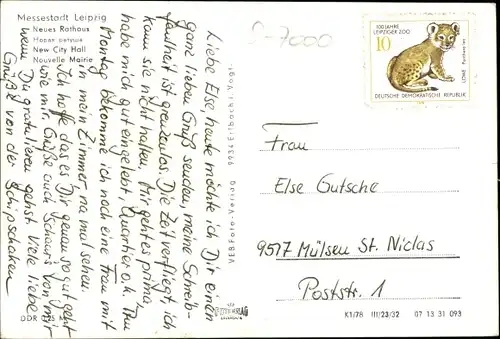 Messestadt Leipzig
Neues Rathaus
Новая ратуша
New City Hall
Nouvelle Mairie
Liebe Else heute möchte ich Dir einen
ganz lieben Gruß senden, meine Schreib-
faulheit ist grenzenlos. Die Zeit verfliegt, ich
kann sie nicht halten, Mir geht es prima,
habe mich gut eingelebt, Quartier o.k. Am
Montag bekomme ich noch eine Frau mit
in mein Zimmer, na mal sehen.
Ich hoffe das es Dir genau so gut geht
wie mir. Grüße auch von mir
wenn Du gratulieren gehst. Viele liebe
Grüße von der
DDR
VEB Foto-Verlag 9934 Erlbach
S-7000
100 JAHRE
LEIPZIGER ZOO
10
LÖWE Panthera leo
DEUTSCHE DEMOKRATISCHE REPUBLIK
Frau
Else Gutsche
9517 Mülsen St. Niclas
Poststr. 1
K1/78 III/23/32 07 13 31 093